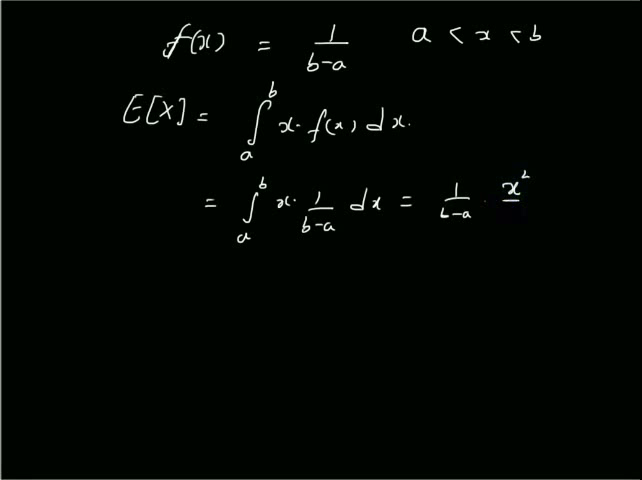 f(x) = 1/(b-a) a < x < b
E[X] = ∫_a^b x. f(x) dx.
= ∫_a^b x. 1/(b-a) dx = 1/(b-a) . x²/